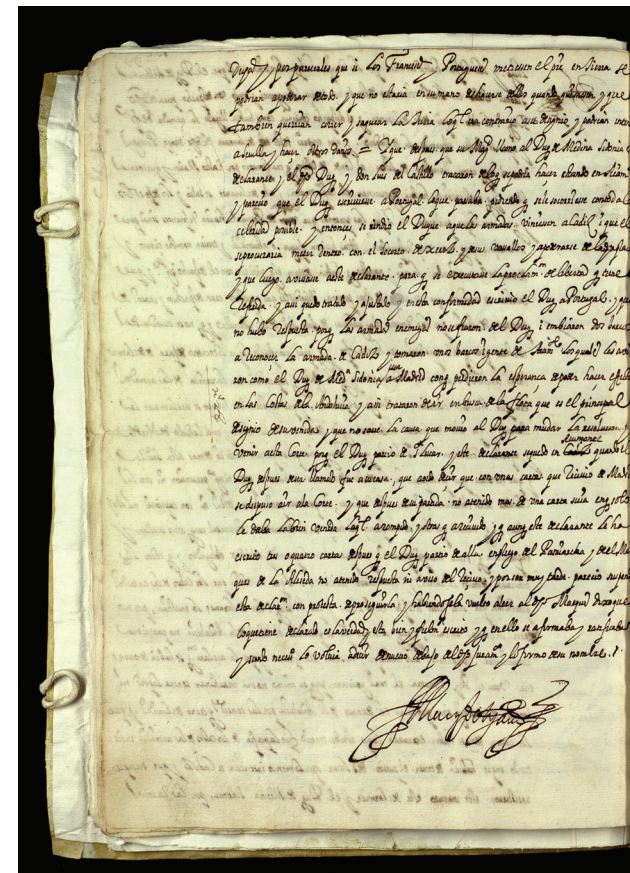 y por parecerles que si los Franceses y Portugueses metiesen el pie en tierra se
podrian apoderar y que no estaria en su mano echarse dellos quando quisiesen y que
tambien querrian correr y saquear la tierra lo q.l era contrario a su designio y podrian
a Sevilla y hacer otros daños = Y que despues que su Mag.d llamo al Duq. de Medina Sidonia
declarante y el Duq. y don Luis del Castillo trataron de lo q. se podria hacer estando en
y parecio que el Duq. escriviese a Portugal lo que pasaba pidiendo q. se le socorriese con toda la
celeridad posible y entonces el Duque aquella armada viniesen a Cadiz i que el
se procuraria meter dentro con el socorro de y sus cavallos y apoderarse de la
y que luego avisase a este declarante para q. se executase la proclam.on de libertad q. tiene
referida y asi quedo tratado y ajustado y en esta conformidad escrivio el Duq. a Portugal y que
no hubo respuesta porq. las armadas enemigas no se fiaron del Duq. i embiaron dos barcos
a reconocer la armada de Cadiz y tomaron unos barcos i gente de los quales
ron como el Duq. de Med.a Sidonia a Madrid con q. perdieron la esperanza de poder hacer efecto
en las costas del Andalucia y asi trataron de ir en busca de la flota que es el principal
designio de su venida y que no save la causa que movio al Duq. para mudar la resolucion y
venir a esta Corte porq. el Duq. partio de S. Lucar y este declarante se quedo en quando el
Duq. despues de su llamado fue a su casa que solo decir que con unas cartas que recivio de Madrid
se dispuso a ir a la Corte y que despues de su partida no a tenido mas de una carta suia en q. solo
le daba la bien venida la q.l a rompido y otras q. a recivido y q. aunq. este declarante le ha
escrito tres o quatro cartas despues q. el Duq. partio de alla en pliego del Patriarcha y del Mar
ques de la no a tenido respuesta ni aviso del recivo y por ser muy tarde parecio suspender
esta declar.on con protesta de proseguirla y habiendosele vuelto a leer al dho Marques dixo que
lo que tiene declarado es la verdad y esta bien y fielm.te escrito y q. en ello se afirmaba y ratificaba
y siendo neces.o lo volvia a decir de nuevo debajo del dho juram.to y lo firmo de su nombre